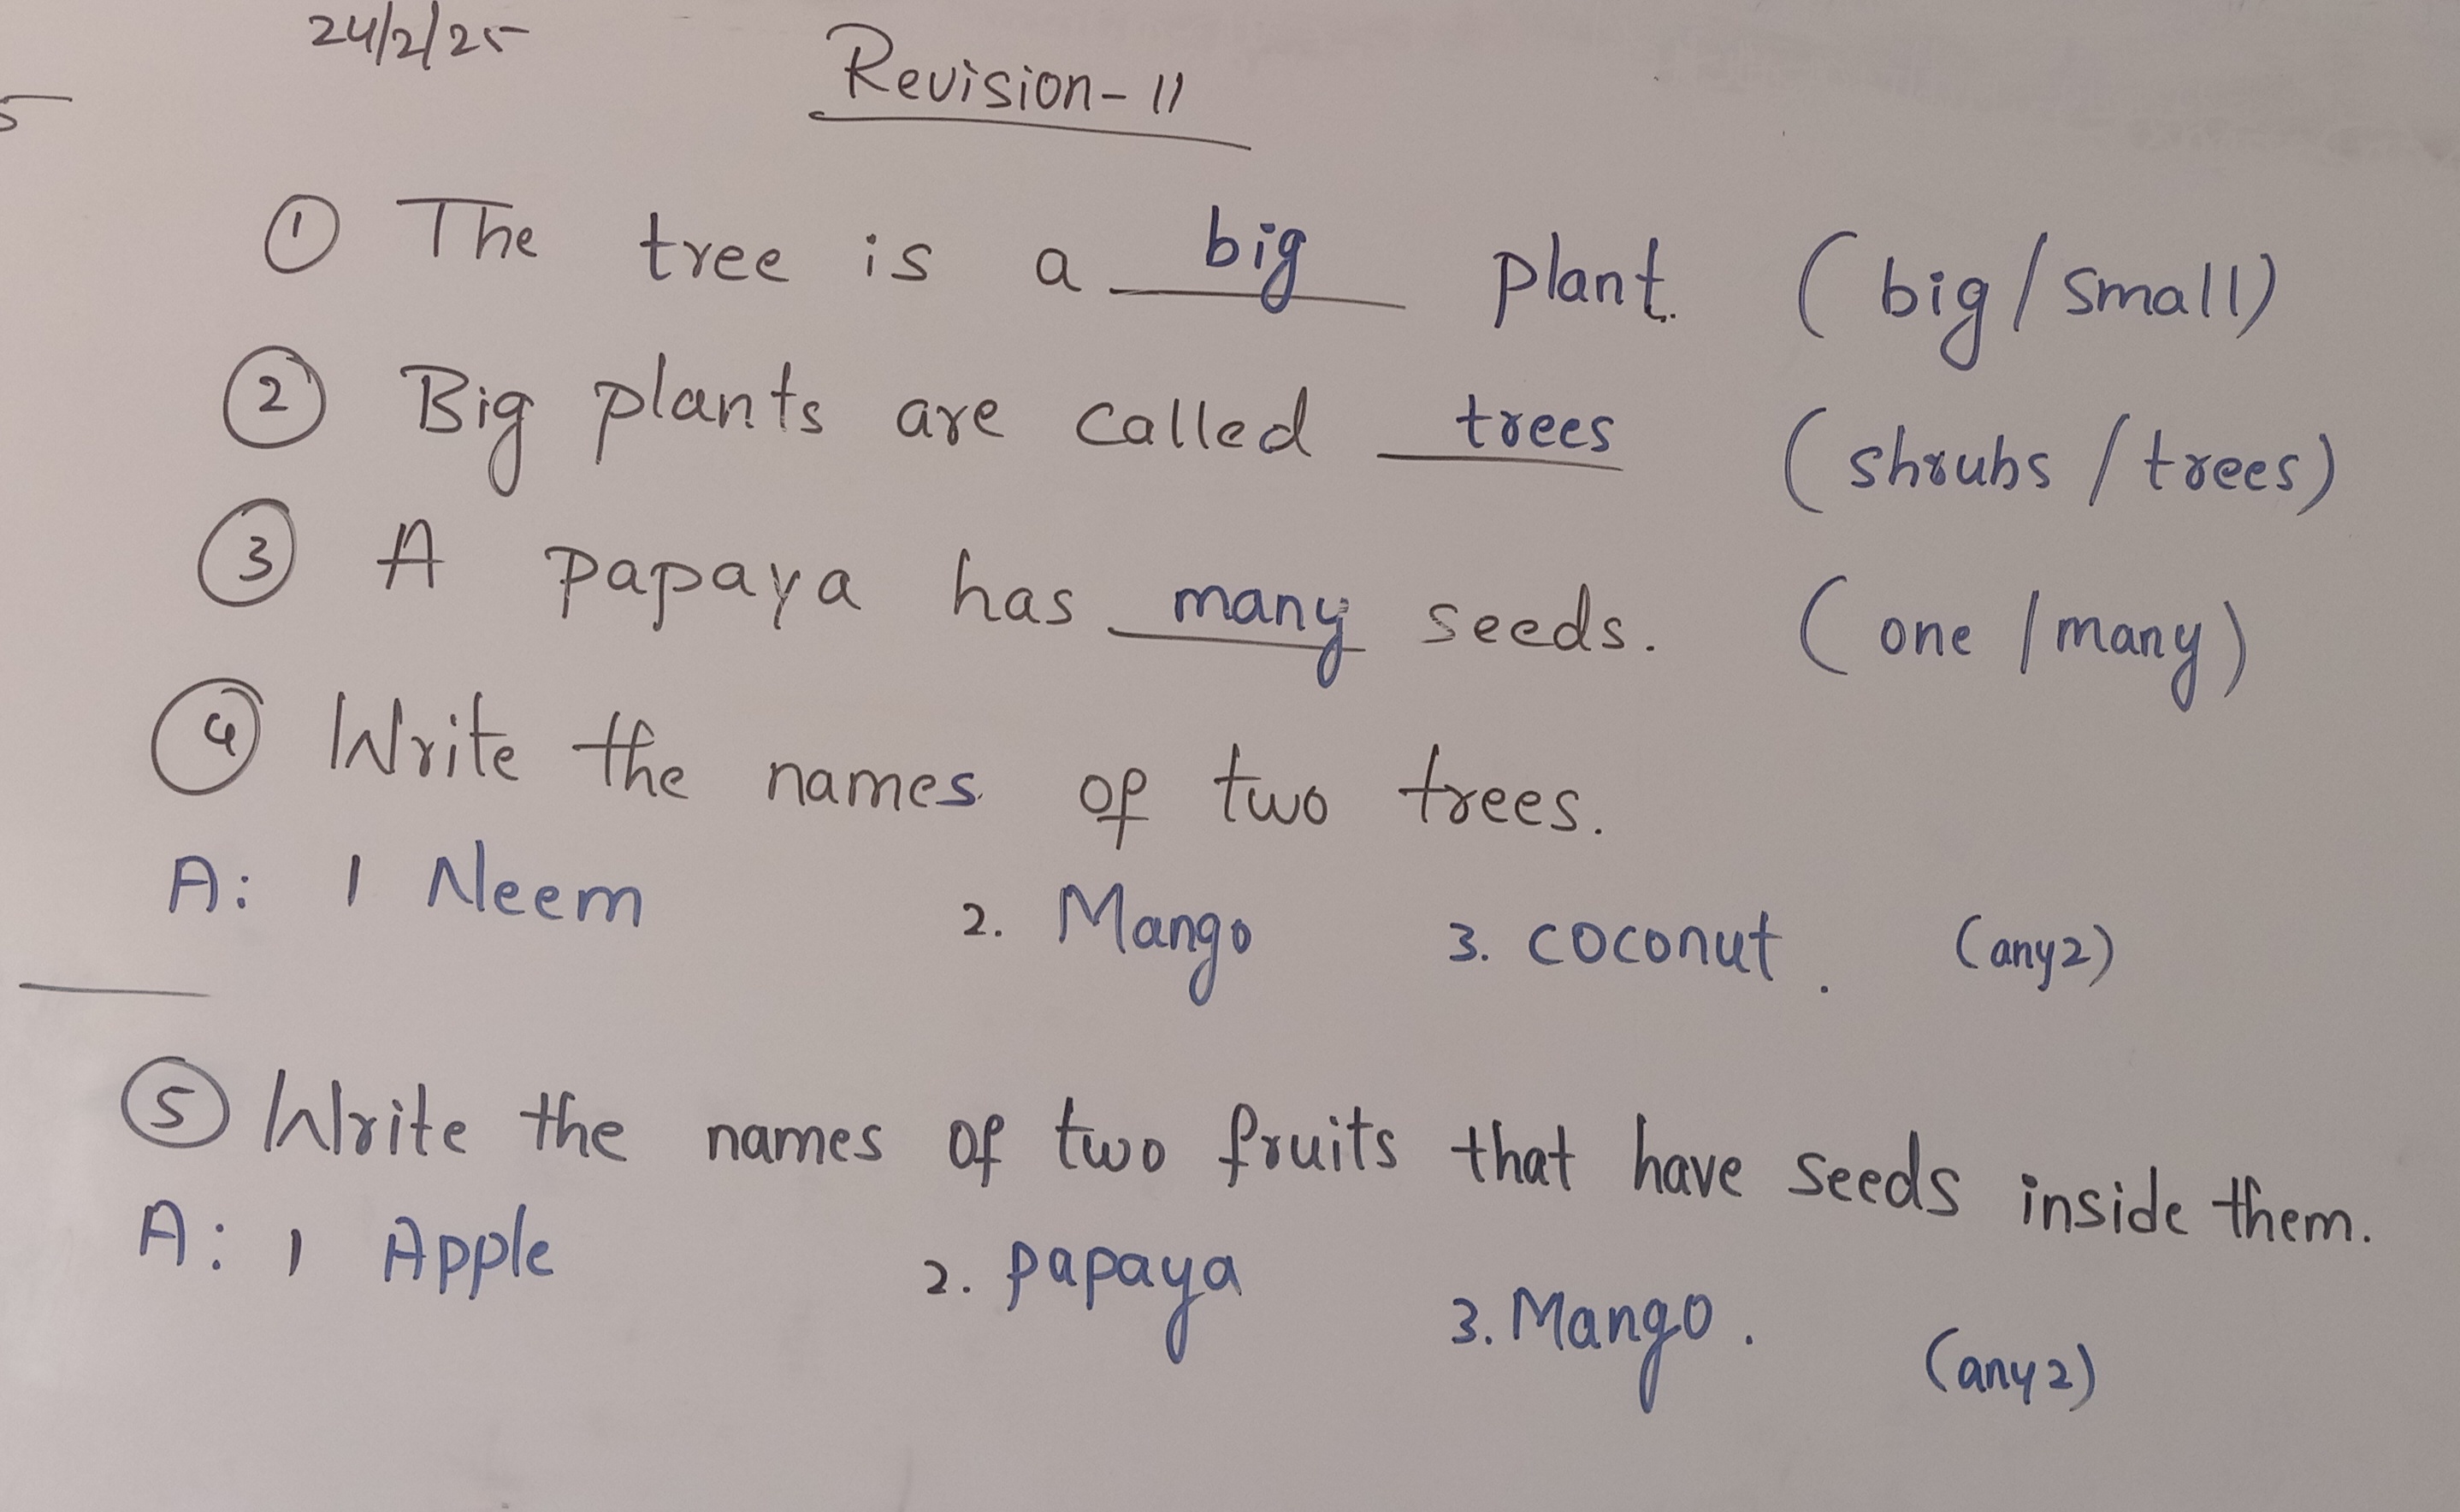 24/2/25
Revision-11
① The tree is a big plant. (big/small)
② Big plants are called trees (shrubs / trees)
③ A papaya has many seeds. (one / many)
④ Write the names of two trees.
A: 1 Neem 2. Mango 3. coconut. (any2)
⑤ Write the names of two fruits that have seeds inside them.
A: 1 Apple 2. papaya 3. Mango. (any2)